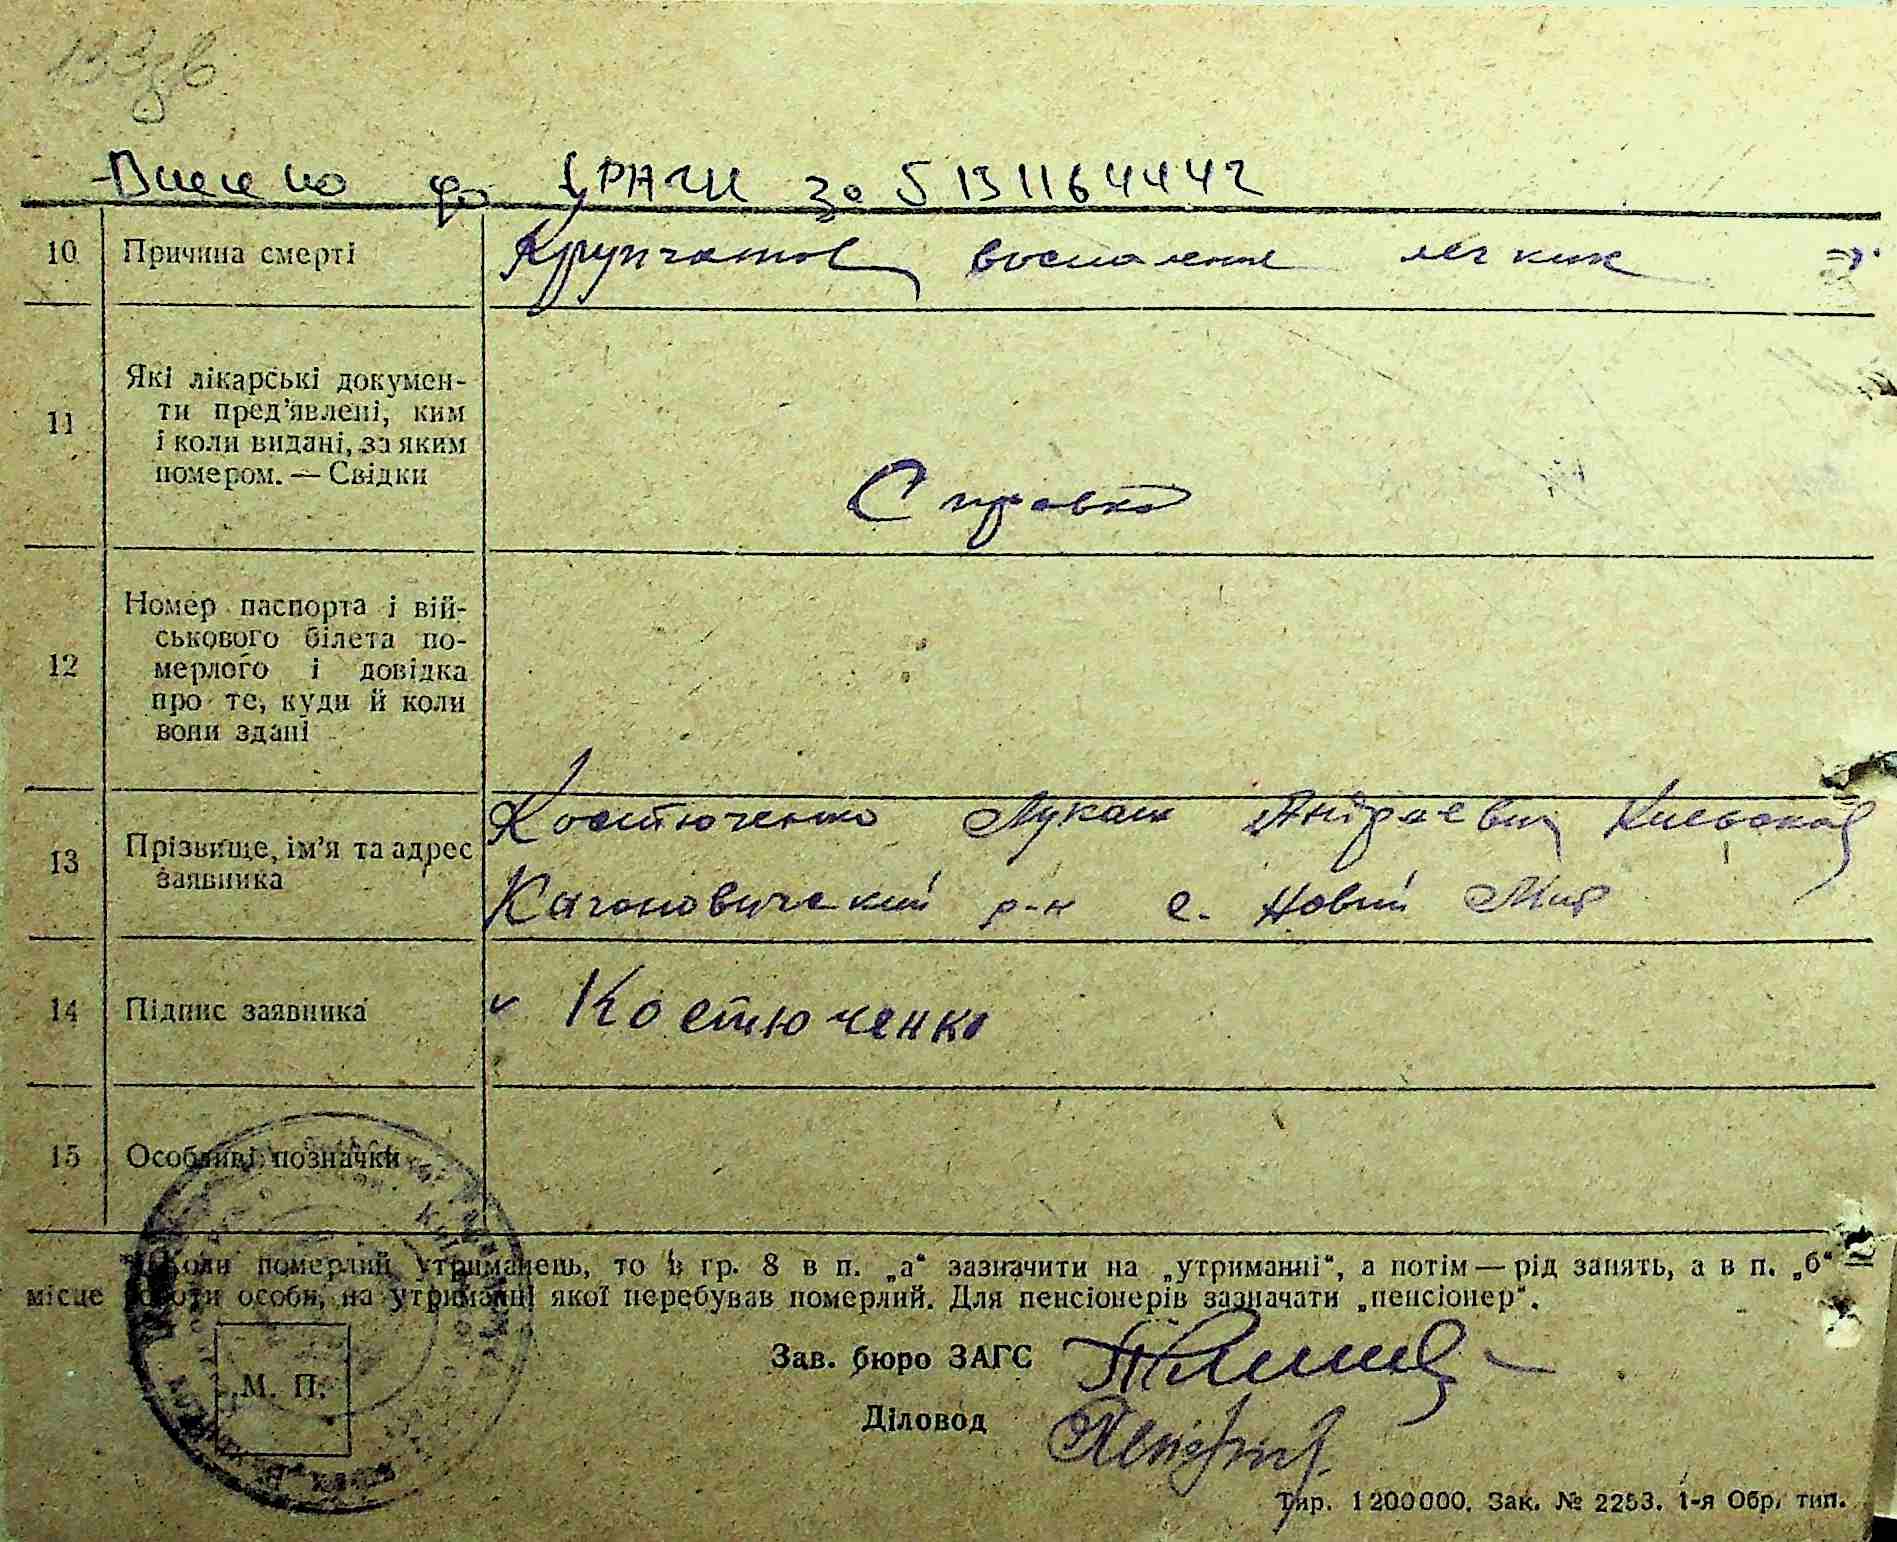 133зв
Внесено до ДРАЦС за 5131164442
10 Причина смерті Крупчатое воспаление легких
11 Які лікарські докумен-
ти пред'явлені, ким
і коли видані, за яким
номером. — Свідки
Справка
12 Номер паспорта і вій-
ськового білета по-
мерлого і довідка
про те, куди й коли
вони здані
13 Прізвище, ім'я та адрес
заявника
Костюченко Лукаш Андреевич Киевской
Кагановический р-н с. Новий Мир
14 Підпис заявника ᵛ Костюченко
15 Особливі позначки
Коли померлий утриманець, то в гр. 8 в п. „а“ зазначити на „утриманні“, а потім — рід занять, а в п. „б“ —
місце роботи особи, на утриманні якої перебував померлий. Для пенсіонерів зазначати „пенсіонер“.
Зав. бюро ЗАГС
М. П.
Діловод
Тир. 1200000. Зак. № 2253. 1-я Обр. тип.